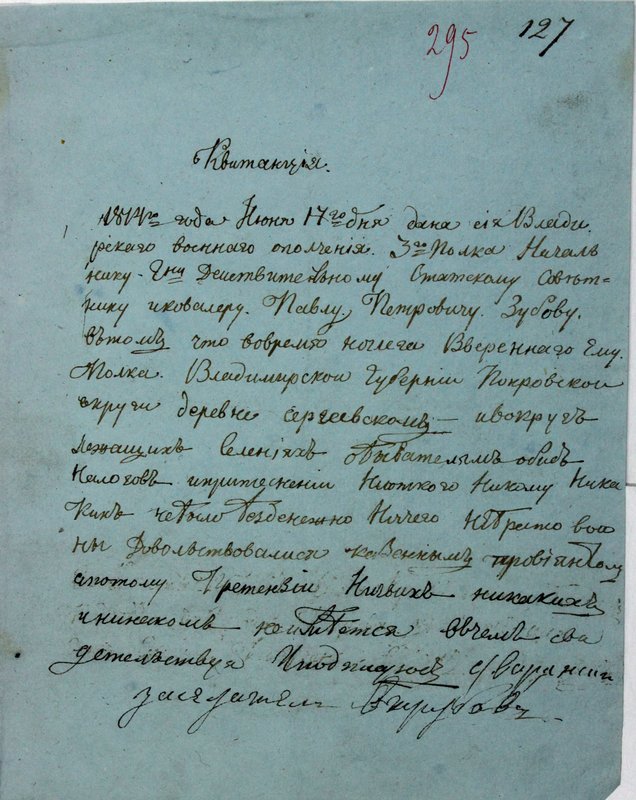 295 127
Квитанція.
1814го года Июня 17го дня дана сія Влади
мрскаго военнаго ополченія. 3го Полка Началь
нику. Гну Действительному Статскому Совѣт=
нику икавалеру. Павлу. Петровичу. Зубову.
вътомъ что вовремѧ ночлега Ввереннаго Ему.
Полка. Владимирской Губерніи Покровской
округи деревне сергеевскомъ ивокругъ
лежащихъ Селеніяхъ обывателямъ обидъ
Налоговъ ипритеснении Никому Ника
кихъ небыло безденежно Ничего небрато вои
ны довольствовалися казеннымъ провіянтом
апотому Претензіи никакихъ
ининакомъ неимѣется вчемъ сви
детельствуя Дворянскии
заседатель